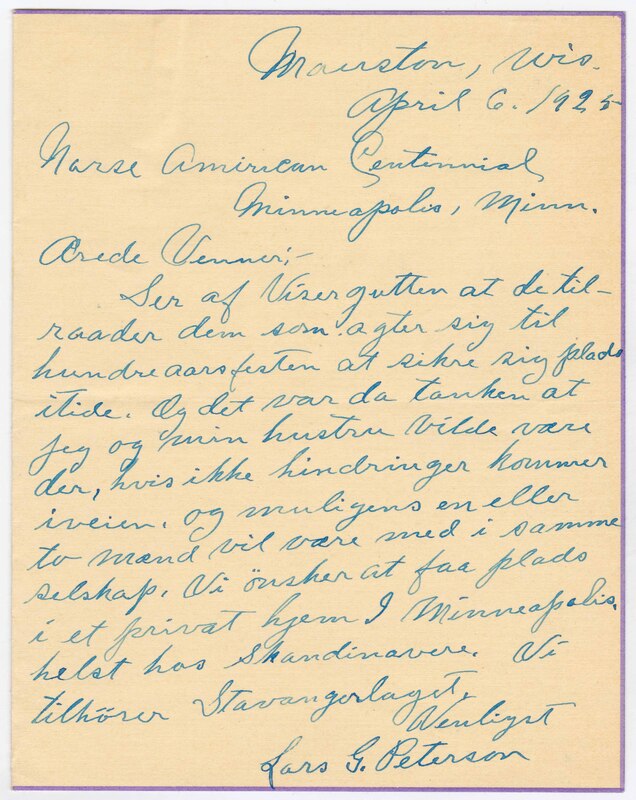 Mauston, Wis.
April 6. 1925
Norse American Centennial
Minneapolis, Minn.
Ærede Venner;-
Ser af Visergutten at de til-
raader dem som agter sig til
hundreaarsfesten at sikre sig plads
itide. Og det var da tanken at
jeg og min hustru vilde være
der, hvis ikke hindringer kommer
iveien. og muligens en eller
to mænd vil være med i samme
selskap. Vi önsker at faa plads
i et privat hjem I Minneapolis.
helst hos Skandinavere. Vi
tilhörer Stavangerlaget.
Venligst
Lars G. Peterson